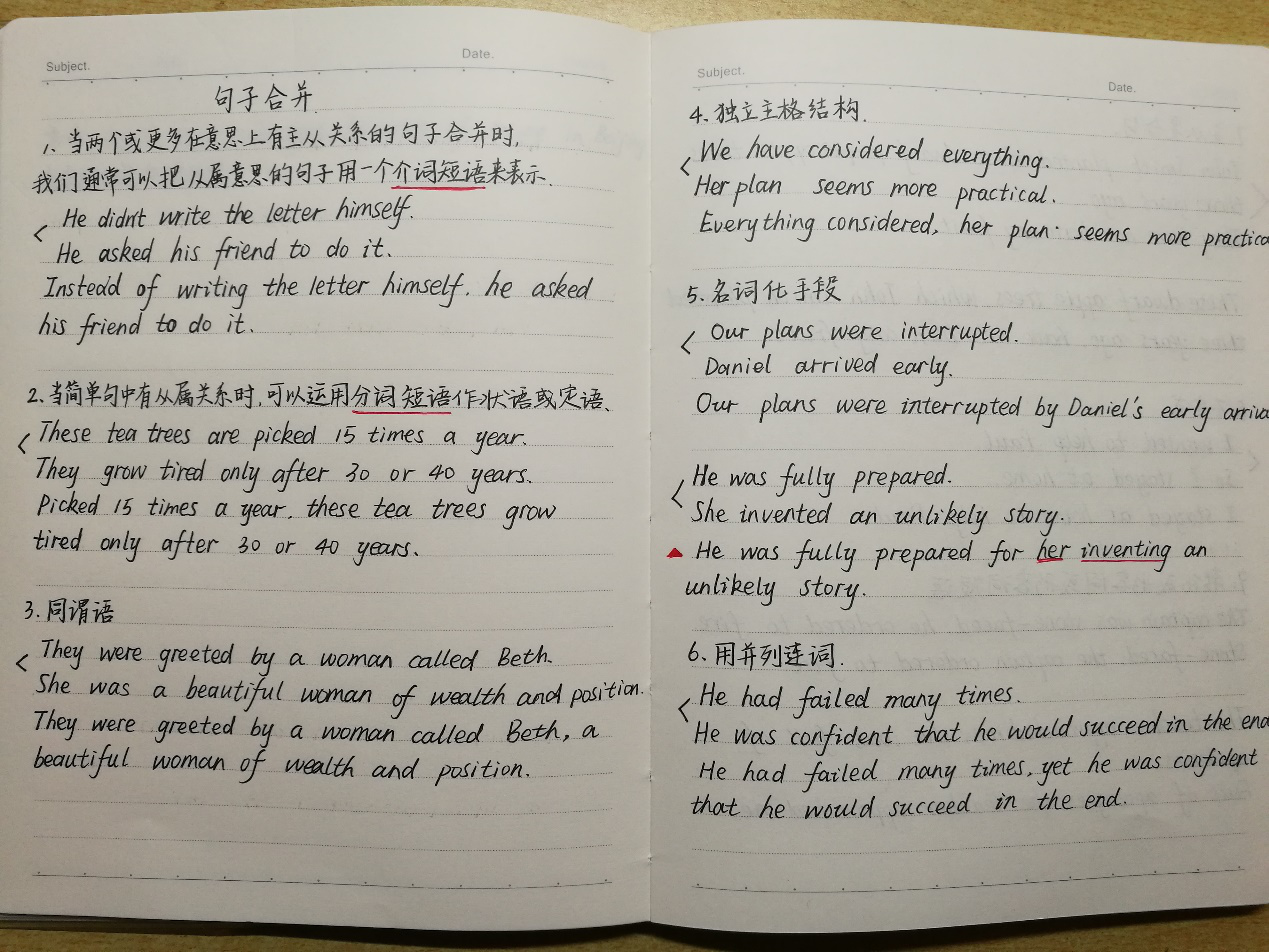 Subject.
Date.
句子合并
1、当两个或更多在意思上有主从关系的句子合并时,
我们通常可以把从属意思的句子用一个介词短语来表示.
He didn't write the letter himself.
He asked his friend to do it.
Instead of writing the letter himself, he asked
his friend to do it.
2、当简单句中有从属关系时,可以运用分词短语作状语或定语、
These tea trees are picked 15 times a year.
They grow tired only after 30 or 40 years.
Picked 15 times a year, these tea trees grow
tired only after 30 or 40 years.
3、同谓语
They were greeted by a woman called Beth.
She was a beautiful woman of wealth and position.
They were greeted by a woman called Beth, a
beautiful woman of wealth and position.
Subject.
Date.
4、独立主格结构.
We have considered everything.
Her plan seems more practical.
Everything considered, her plan seems more practica
5、名词化手段
Our plans were interrupted.
Daniel arrived early.
Our plans were interrupted by Daniel's early arriva
He was fully prepared.
She invented an unlikely story.
He was fully prepared for her inventing an
unlikely story.
6、用并列连词.
He had failed many times.
He was confident that he would succeed in the end
He had failed many times, yet he was confident
that he would succeed in the end.